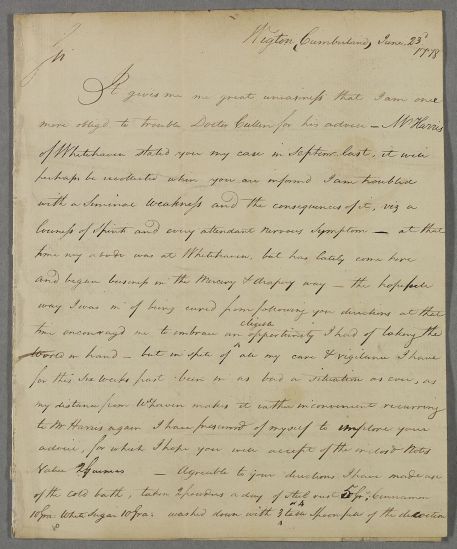 Wigton, (Cumberland) June 23d
1778
Sir
It gives me me great uneasiness that I am once
more oblig'd to trouble Doctor Cullen for his advice – Mr Harris
of Whitehaven stated you my case in Septemr last, it will
perhaps be recollected when you are informd I am troubled
with a Seminal Weakness and the consequences of it, viz a
lowness of Spirits and every attendant nervous Symptom – at that
time my abode was at Whitehaven, but has lately come here
and began business in the Mercery & drapery way – the hopefull
way I was in of being cured from following your directions at that
time encouragd me to embrace an
eligible
opportunity I had of taking the
in hand – but in spite of all my care & vigilance I have
for this Six weeks past been in as bad a situation as ever, as
my distance from Whaven makes it rather inconvenient recurring
to Mr Harris again I have presumed of myself to implore your
advice, for which I hope you will accept of the inclosd Note
Value 2 Guineas – Agreeable to your directions I have made use
of the cold bath, taken 2 powders a day of Steel rust 5 gr. Cinnamon
10 gra. White Sugar 10 gra: washed down with 3 table Spoonfuls of the decoction